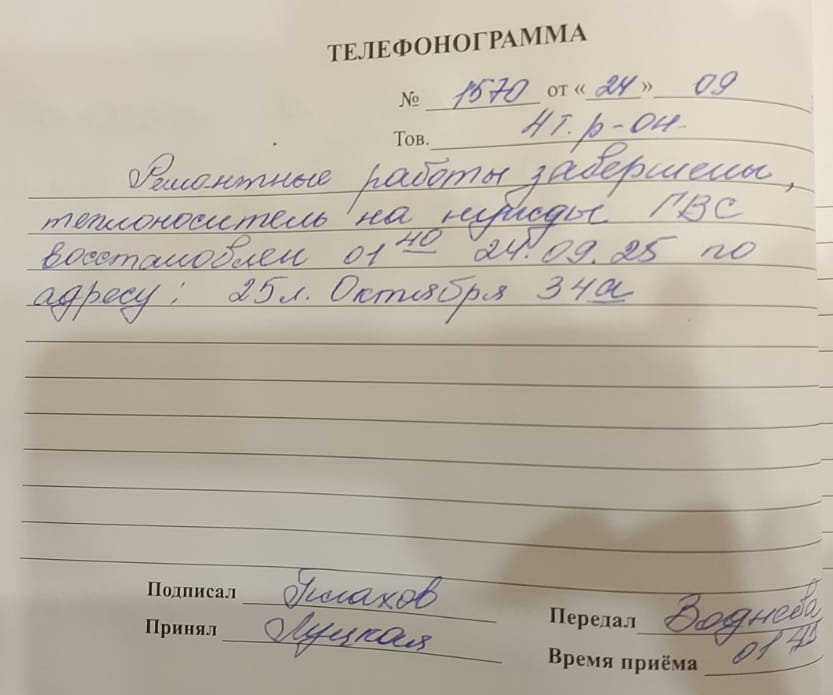 ТЕЛЕФОНОГРАММА
№ 1570 от «24» 09
Тов. 4 т. р-он.
Ремонтные работы завершены,
теплоноситель на нужды ГВС
восстановлен 01 40 24.09.25 по
адресу: 25 л. Октября 34а
Подписал
Принял Луцкая
Передал Воднева
Время приёма 01